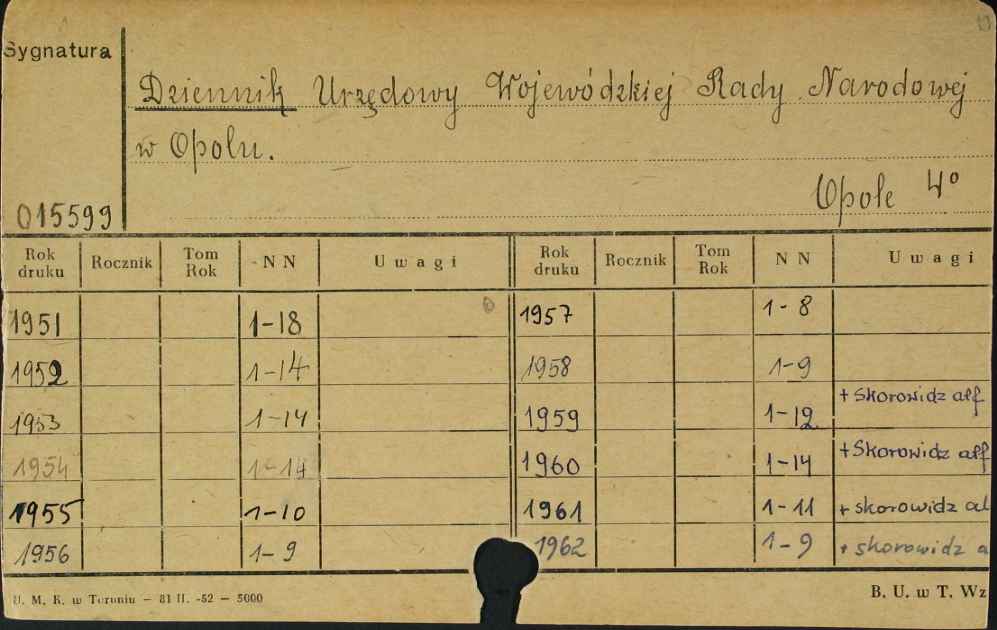 Sygnatura
Dziennik Urzędowy Wojewódzkiej Rady Narodowej
w Opolu.
Opole 4°
015599
Rok druku Rocznik Tom Rok NN Uwagi Rok druku Rocznik Tom Rok NN Uwagi
1951 1-18 1957 1-8
1952 1-14 1958 1-9
1953 1-14 1959 1-12 + skorowidz alf
1954 1-14 1960 1-14 + Skorowidz alf
1955 1-10 1961 1-11 + skorowidz al
1956 1-9 1962 1-9 + skorowidz a
U. M. K. w Toruniu — 81 II. -52 — 5000
B. U. w T. Wz